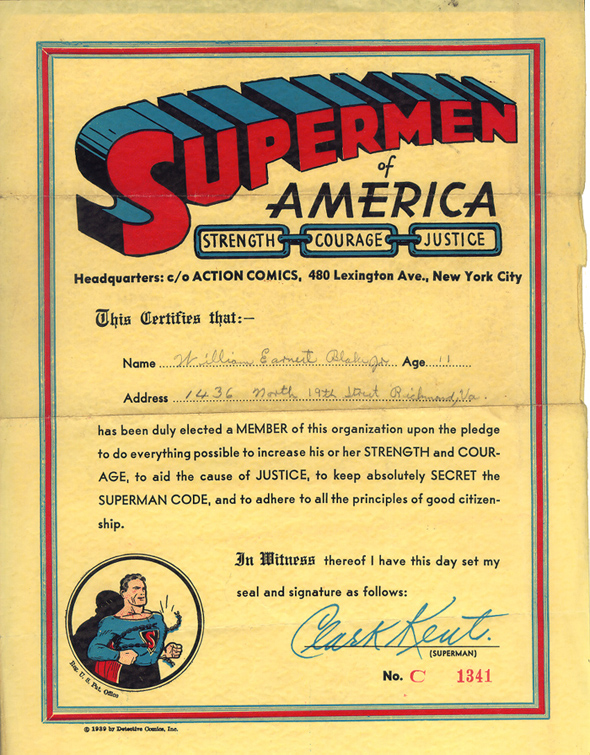 SUPERMEN
of
AMERICA
STRENGTH COURAGE JUSTICE
Headquarters: c/o ACTION COMICS, 480 Lexington Ave., New York City
This Certifies that:—
Name William Earnest Blake Jr Age 11
Address 1436 North 19th Street Richmond, Va.
has been duly elected a MEMBER of this organization upon the pledge
to do everything possible to increase his or her STRENGTH and COUR-
AGE, to aid the cause of JUSTICE, to keep absolutely SECRET the
SUPERMAN CODE, and to adhere to all the principles of good citizen-
ship.
In Witness thereof I have this day set my
seal and signature as follows:
Clark Kent.
(SUPERMAN)
No. C 1341
S
Reg. U. S. Pat. Office
© 1939 by Detective Comics, Inc.